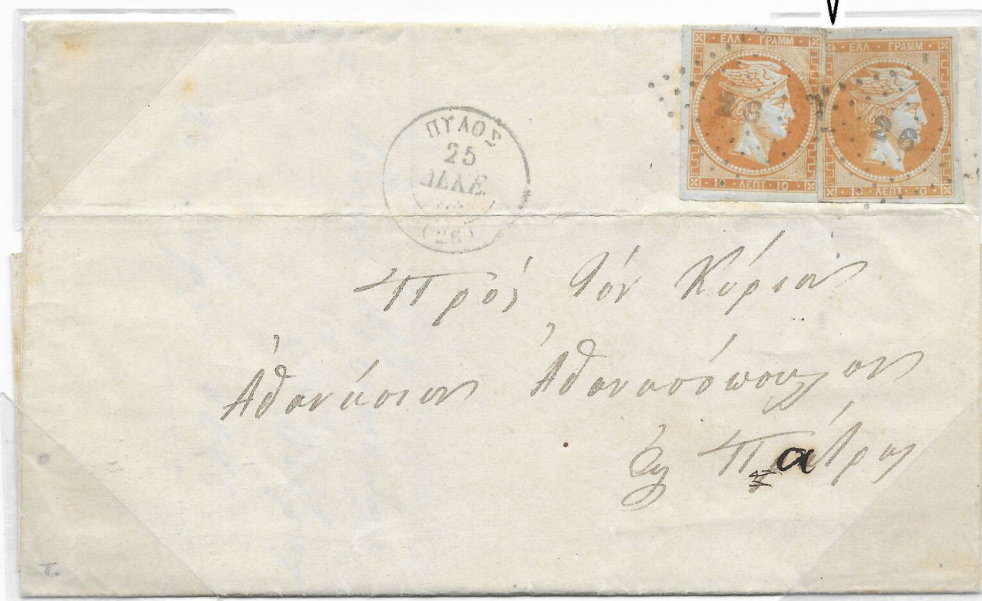 ΕΛΛ ΓΡΑΜΜ
10 ΛΕΠΤ 10
26
ΕΛΛ ΓΡΑΜΜ
10 ΛΕΠΤ 10
26
ΠΥΛΟΣ
25
ΔΕΚΕ
(26)
Πρός τόν Κύριον
Ἀθανάσιον Ἀθανασόπουλον
Εἰς Πάτρας
α
T.